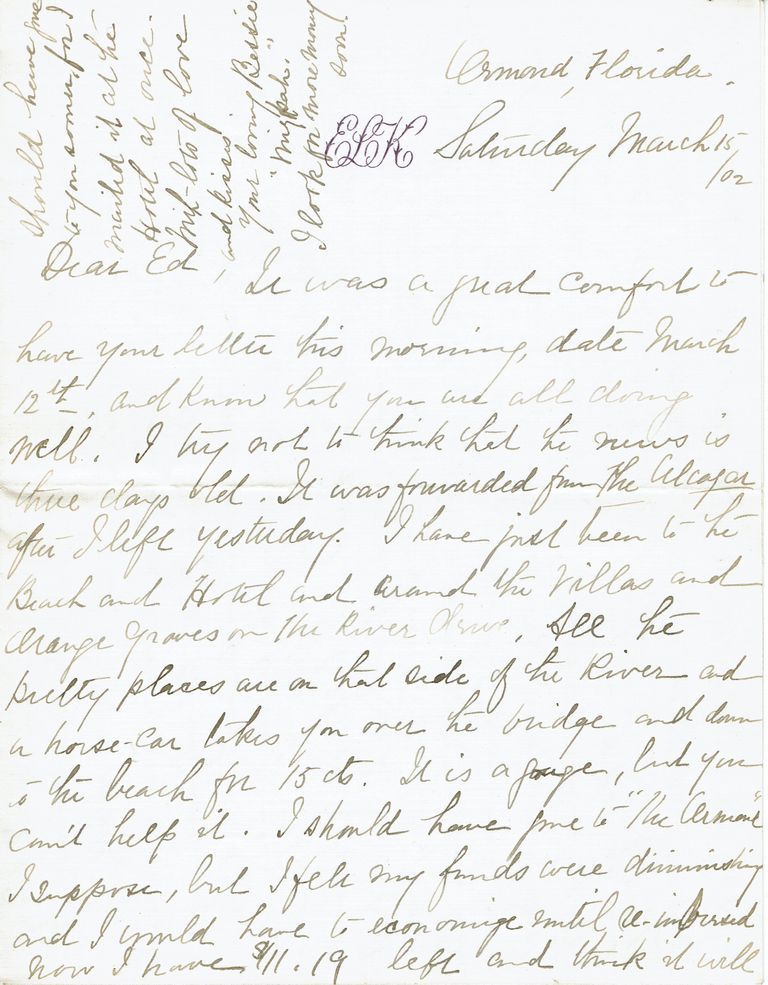 Ormond, Florida.
ELK
Saturday March 15/02
Dear Ed,
It was a great comfort to
have your letter this morning, date March
12th, and know that you are all doing
well. I try not to think that the news is
three days old. It was forwarded from The Alcazar
after I left yesterday. I have just been to the
Beach and Hotel and around the Villas and
Orange Groves on the River Drive. All the
pretty places are on that side of the River and
a horse-car takes you over the bridge and down
to the beach for 15 cts. It is a gouge, but you
can't help it. I should have gone to "The Ormond"
I suppose, but I felt my funds were diminishing
and I would have to economize until re-imbursed
now I have $11.19 left and think it will
should have gone
to you sooner, for I
mailed it at the
Hotel at once.
With lots of love
and kisses
Your loving Bessie
"Mizpah."
I look for more money
soon!